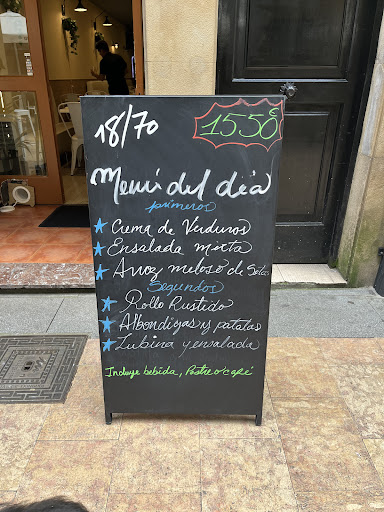 18/70
15'50€
Menú del día
primeros
Crema de Verduras
Ensalada Mixta
Arroz meloso de Setas
Segundos
Pollo Rustido
Albondigas y patatas
Lubina y ensalada
Incluye bebida, Postre o café